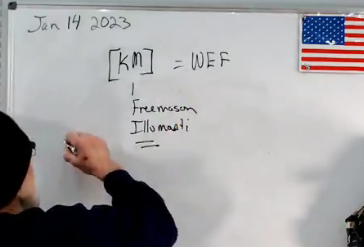 Jan 14 2023
[KM] = WEF
Freemason
Illumati